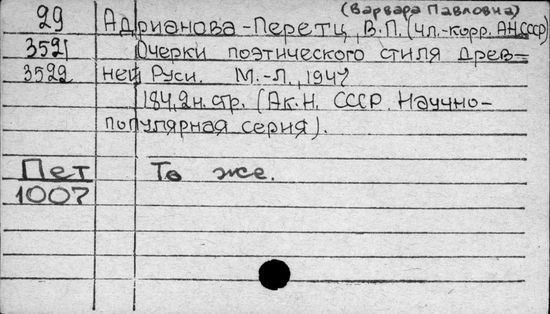 (Варвара Павловна)
29 Адрианова-Перетц, В.П. (чл.-корр. АН СССР)
3521 Очерки поэтического стиля Древ-
3522 ней Руси. М.-Л., 1947
184, 2 н. стр. (Ак. Н. СССР. Научно-
популярная серия).
Пет То же.
1007